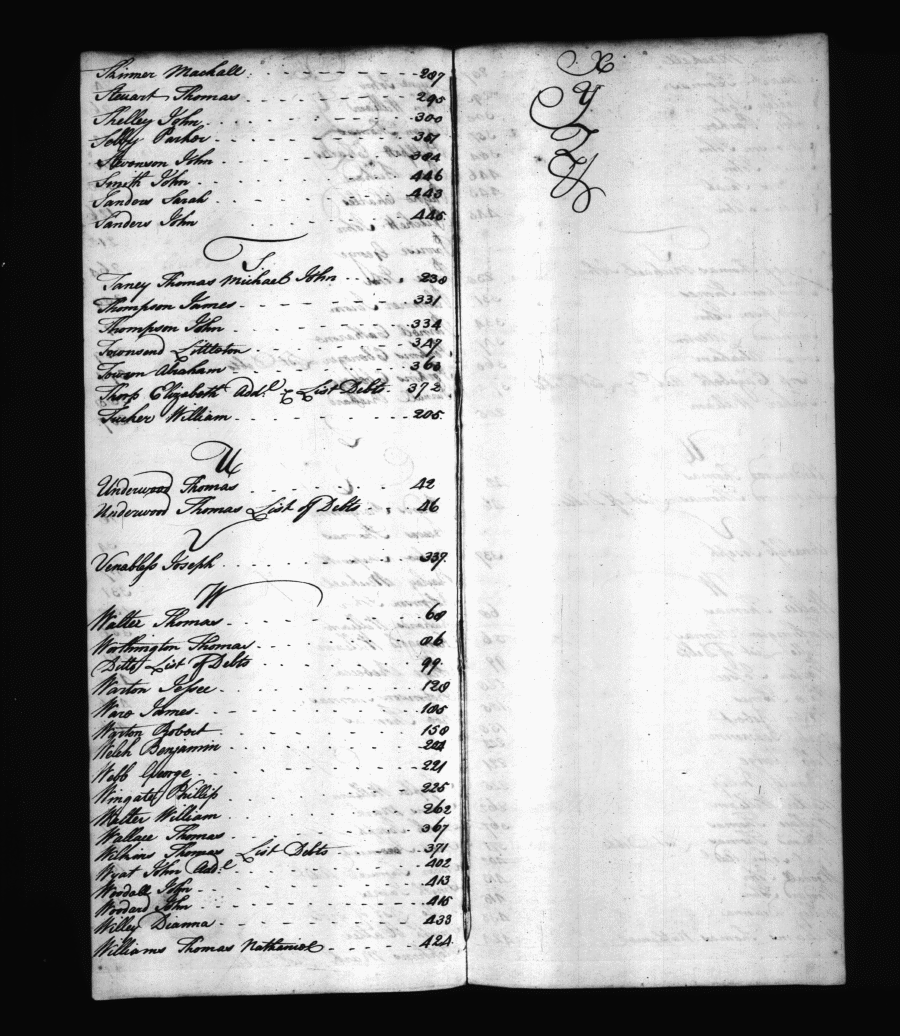 Skinner Mackall 287
Steuart Thomas 295
Shelley John 300
Selby Parker 357
Stevenson John 384
Smith John 446
Sanders Sarah 443
Sanders John 445
T
Taney Thomas Michael John 238
Thompson James 331
Thompson John 334
Townsend Littleton 347
Towson Abraham 363
Thorp Elizabeth Add.l & List Debts 372
Tucker William 205
U
Underwood Thomas 42
Underwood Thomas List of Debts 46
V
Venables Joseph 337
W
Walter Thomas 68
Worthington Thomas 86
Ditto List of Debts 99
Warton Jesse 128
Ware James 105
Warton Robert 158
Welch Benjamin
Webb George 221
Wingate Phillip 225
Walter William 262
Wallace Thomas 367
Wilkins Thomas List Debts 371
Wyat John Add.l 402
Woodall John 413
Woodard John 415
Willey Dianna 433
Williams Thomas Nathaniel 424
X
Y
Z